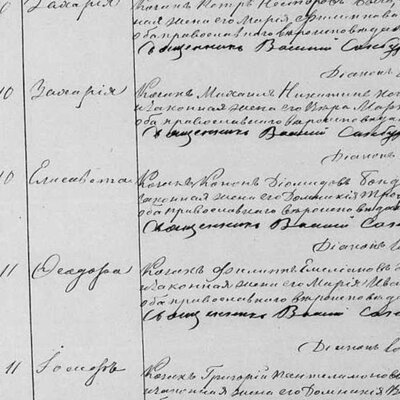 Захарія
Козакъ Петръ Несторовъ
ная жена его Марія
оба православнаго вѣроисповѣд
Священникъ Василій
Діаконъ
10
Захарія
Козакъ Михаилъ Никитинъ
и законная жена его Вѣра Мар
оба православнаго вѣроисповѣда
Священникъ Василій
Діаконъ
10
Елисавета
Козакъ Кононъ Діомидовъ Бонд
законная жена его Домникія Тро
оба православнаго вѣроисповѣда
Священникъ Василій
Діаконъ
11
Ѳеодора
Козакъ Филиппъ Емеліановъ
и законная жена его Марія Ива
оба православнаго вѣроисповѣд
Священникъ Василій
Діаконъ
11
Козакъ Григорій Пантелимоновъ
и законная жена его Домникія